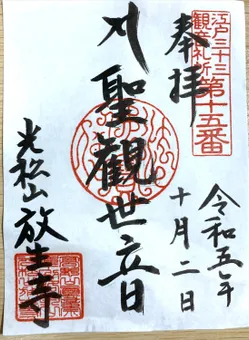 江戸三十三
観音札所
第十五番
奉拝
令和五年
十月二日
聖観世音
光松山放生寺